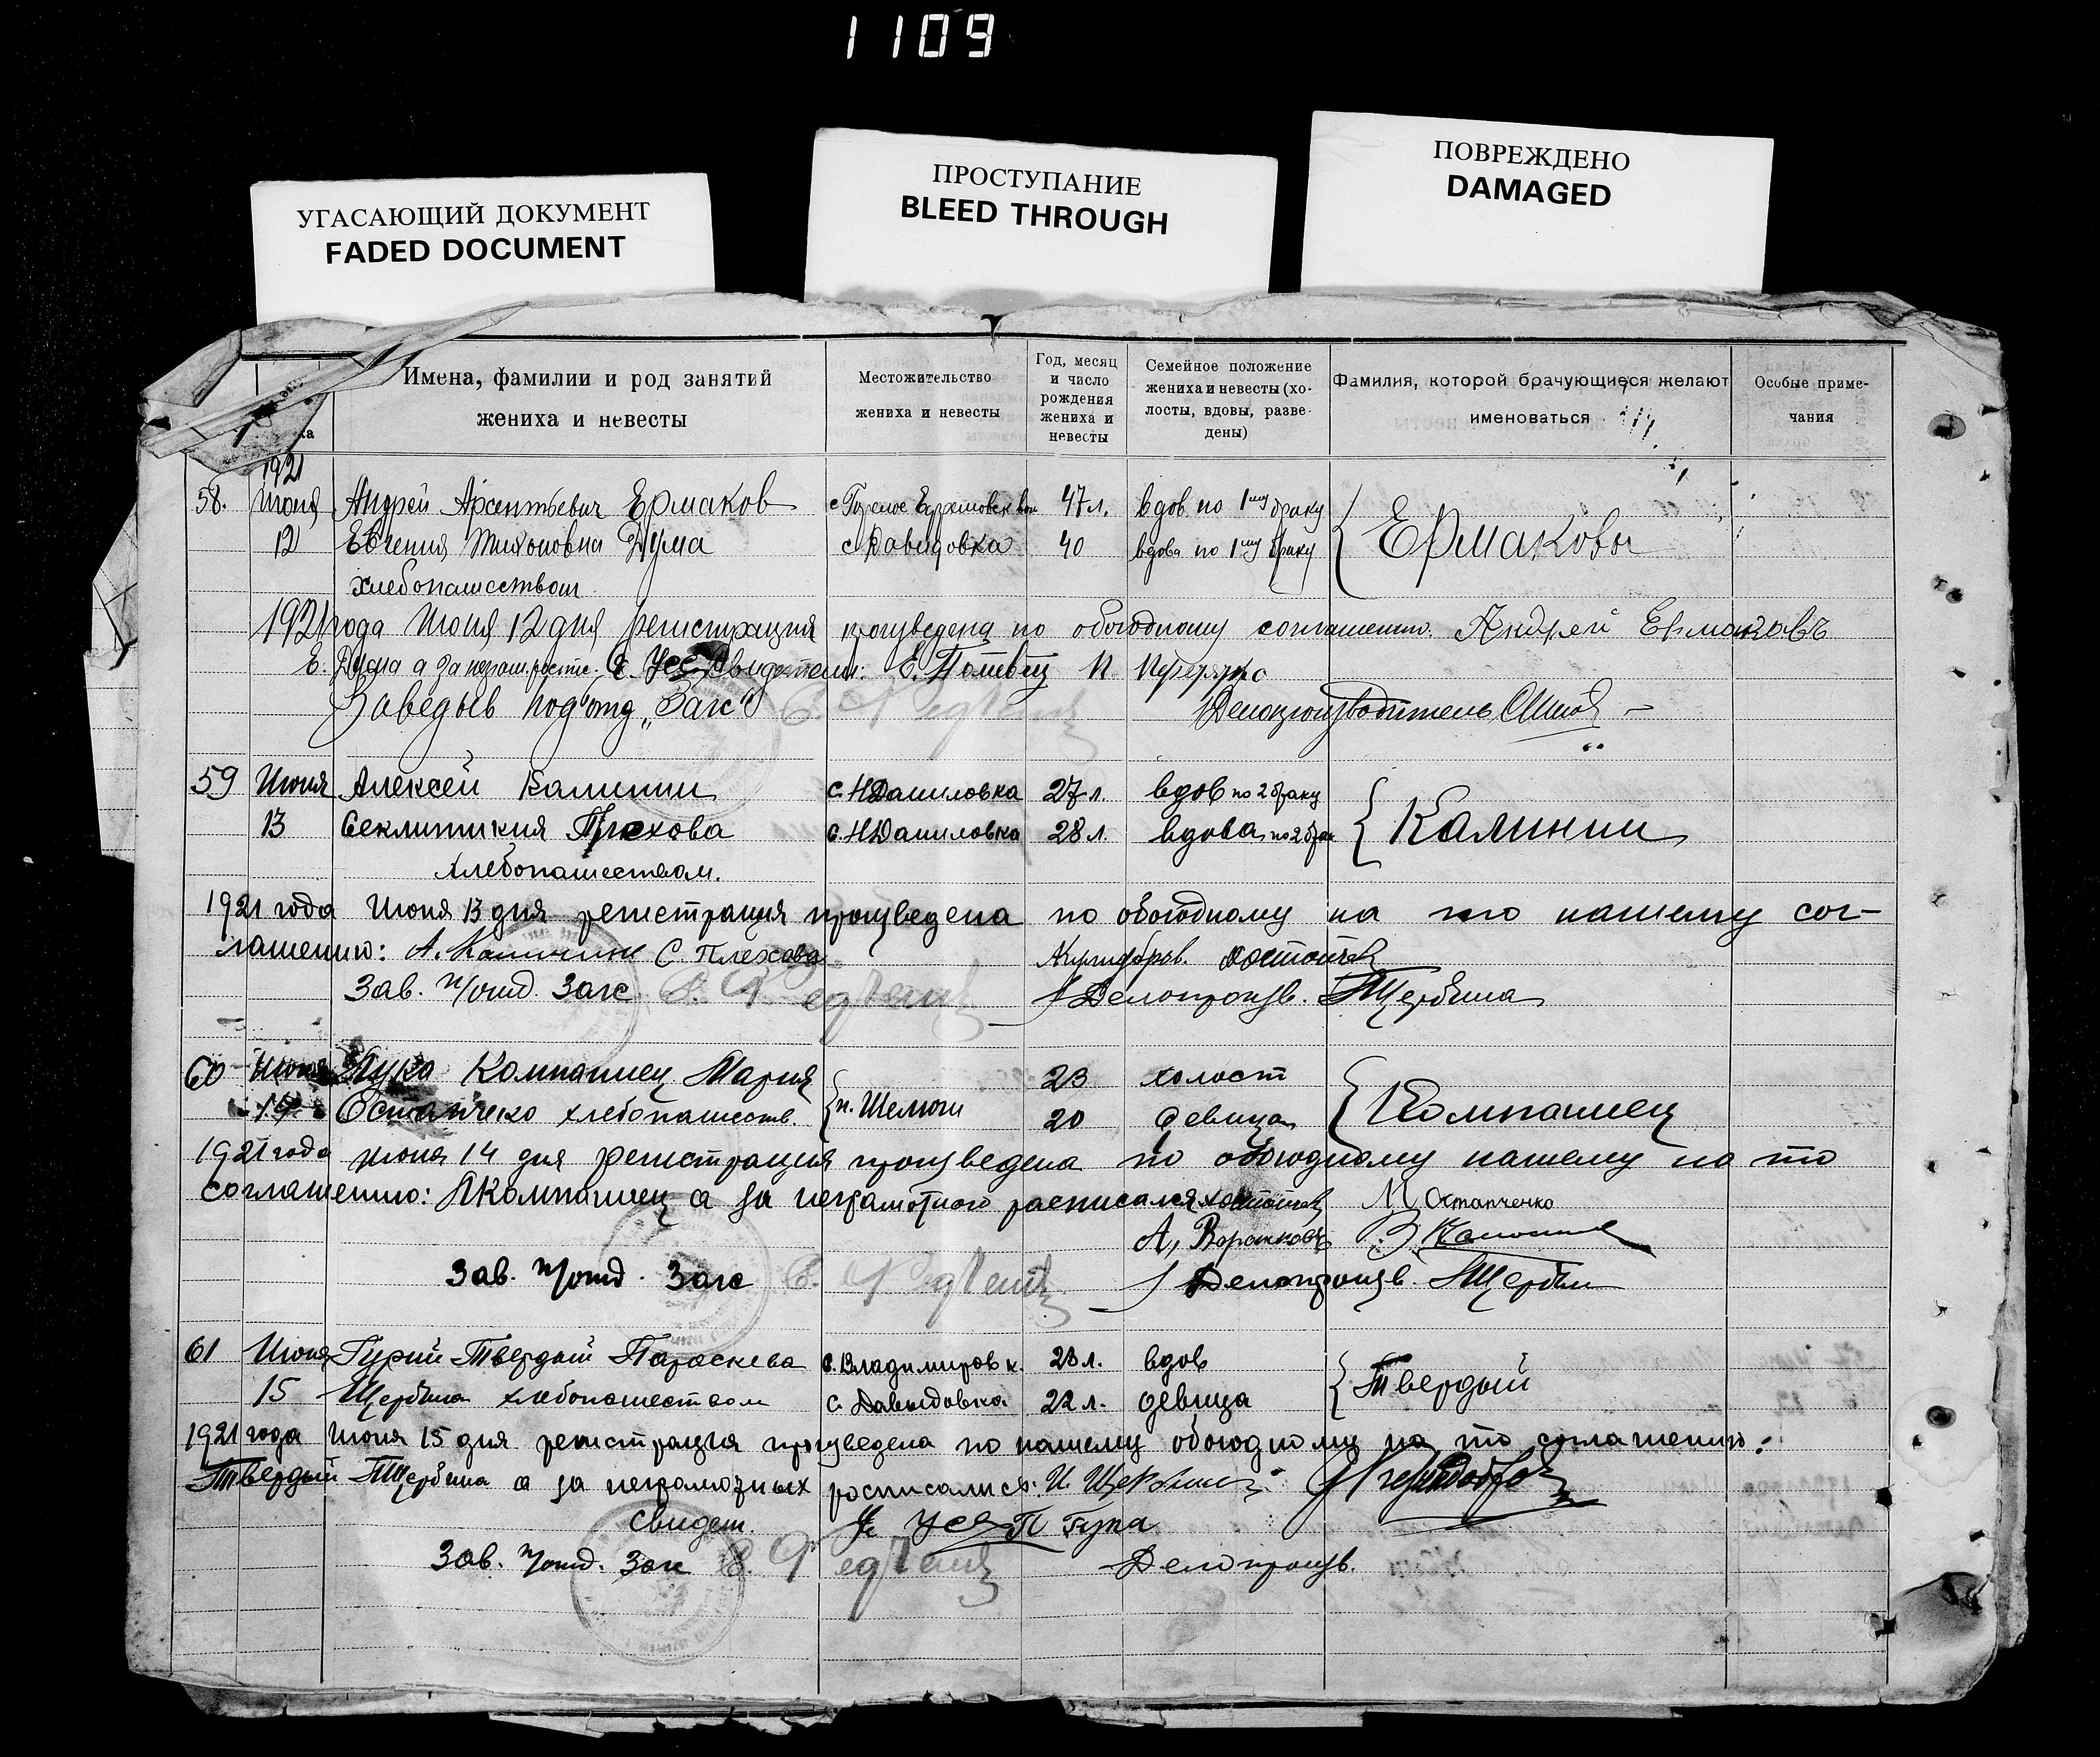 1109
УГАСАЮЩИЙ ДОКУМЕНТ
FADED DOCUMENT
ПРОСТУПАНИЕ
BLEED THROUGH
ПОВРЕЖДЕНО
DAMAGED
Имена, фамилии и род занятий
жениха и невесты
Местожительство
жениха и невесты
Год, месяц
и число
рождения
жениха и
невесты
Семейное положение
жениха и невесты (хо-
лосты, вдовы, разве-
дены)
Фамилия, которой брачующиеся желают
именоваться
Особые приме-
чания
1921
58. Июня Андрей Арсентьевич Ермаков 47 л. вдов по 1му браку
12 Евгения Тихоновна Дума с Давидовка 40 вдова по 1му браку Ермаковы
хлебопашеством
1921 года Июня 12 дня регистрация произведена по обоюдному соглашению. Андрей Ермаковъ
Е. Дума а за Е. П.
Заведыв под'отд „Загс“ Делопроизводитель
59 Июня Алексей Калинин с. НДаниловка 27 л. вдов по 2 браку
13 Секлитикия Плехова с. НДаниловка 28 л. вдова по 2 брак Калинин
хлебопашеством.
1921 года Июня 13 дня регистрация произведена по обоюдному на то нашему сог-
лашению: А. Калинин С. Плехова
Зав. п/отд. Загс Делопроизв. Щербина
60 Июня Лука Компаниец Мария 23 холост
14 Остапченко хлебопашеств. п. Шелюги 20 девица Компаниец
1921 года июня 14 дня регистрация произведена по обоюдному нашему на то
соглашению: Л Компаниец а за неграмотного расписался М Остапченко
А, Воронковъ
Зав. п/отд. Загс Делопроизв. Щербин
61 Июня Гурий Твердый Параскева с. Владимировк. 23 л. вдов
15 Щербина хлебопашеством с. Давыдовка 22 л. девица Твердый
1921 года Июня 15 дня регистрация произведена по нашему обоюдному на то соглашению:
Твердый Щербина а за неграмотных росписались: И. Щербина
свидет. П Гупа
Зав. п/отд. Загс Делопроизв.